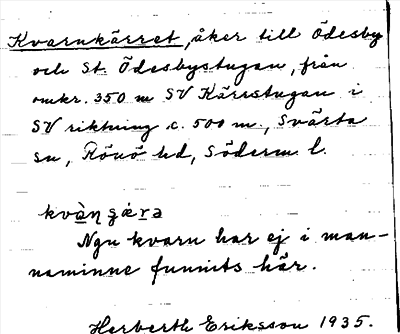 Kvarnkärret, åker till Ödesby
och St. Ödesbystugan, från
omkr. 350 m SV Kärrstugan i
SV riktning c. 500 m., Svärta
sn, Rönö hd, Söderm l.
Ngn kvarn har ej i man-
naminne funnits här.
Herberth Eriksson 1935.